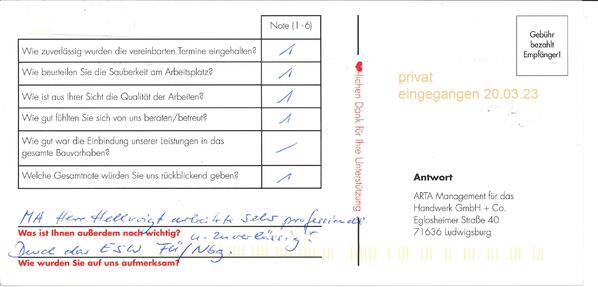 Note (1-6)
Wie zuverlässig wurden die vereinbarten Termine eingehalten? 1
Wie beurteilen Sie die Sauberkeit am Arbeitsplatz? 1
Wie ist aus Ihrer Sicht die Qualität der Arbeiten? 1
Wie gut fühlten Sie sich von uns beraten/betreut? 1
Wie gut war die Einbindung unserer Leistungen in das
gesamte Bauvorhaben? /
Welche Gesamtnote würden Sie uns rückblickend geben? 1
MA Herr Hellvoigt arbeitete sehr professionell
Was ist Ihnen außerdem noch wichtig? u. zuverlässig!
Durch das ESW Fü/Nbg.
Wie wurden Sie auf uns aufmerksam?
❤-lichen Dank für Ihre Unterstützung
Gebühr
bezahlt
Empfänger!
privat
eingegangen 20.03.23
Antwort
ARTA Management für das
Handwerk GmbH + Co.
Eglosheimer Straße 40
71636 Ludwigsburg